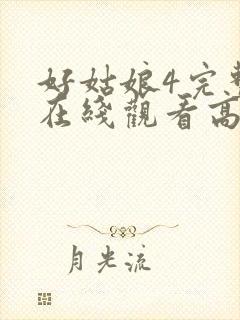 好姑娘4完整
在线觀看高
月光流